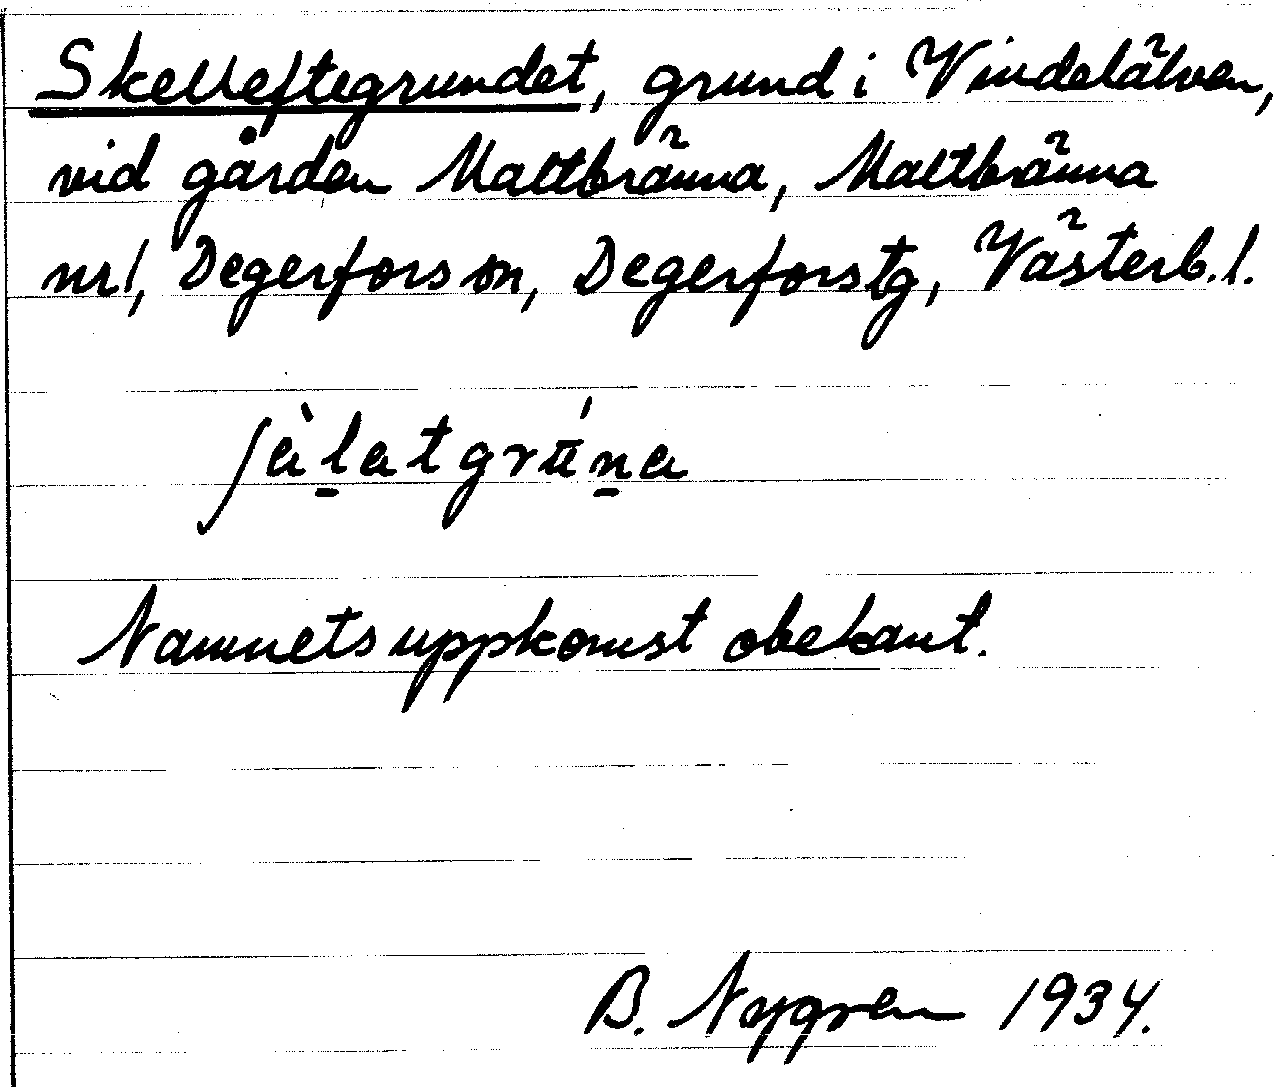 Skelleftegrundet, grund i Vindelälven,
vid gården Maltbränna, Maltbränna
nr1, Degerfors sn, Degerforstg, Västerb.l.
ʃàl̠atgrʉ́n̠a
Namnets uppkomst obekant.
B. Nygren 1934.